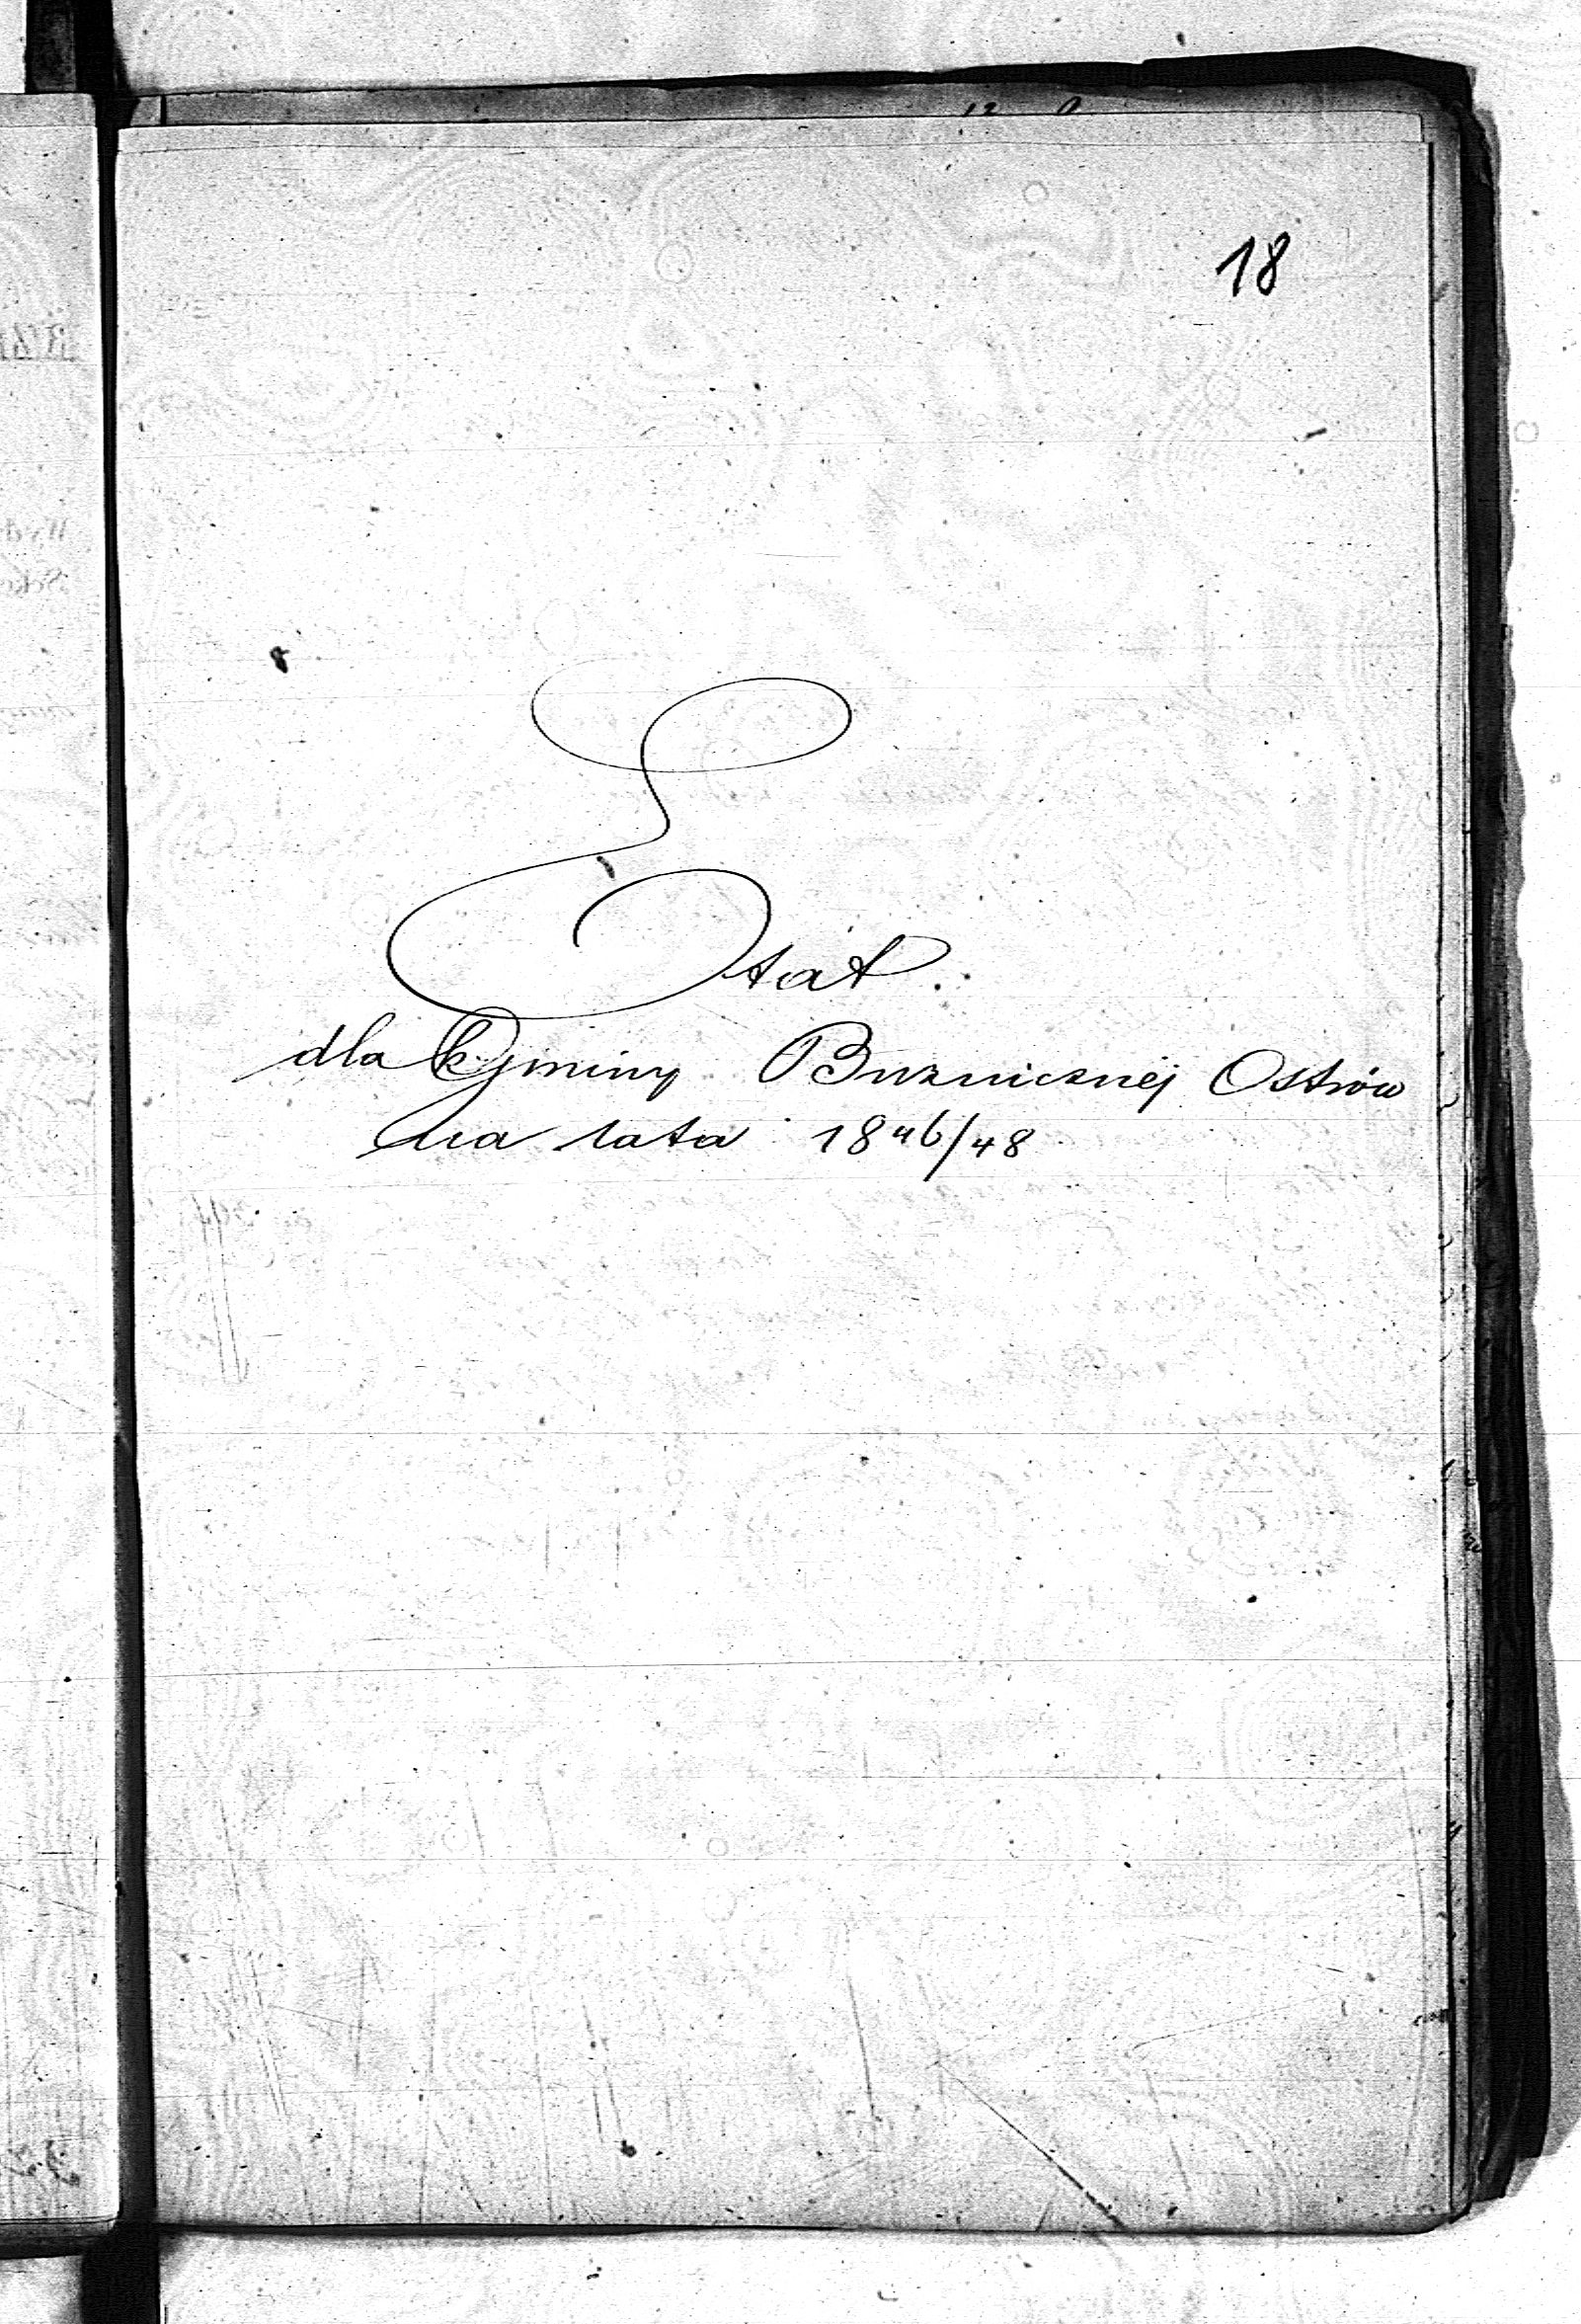 18
Etat
dla Gminy Bużnicznej Ostrów
na lata 1846/48